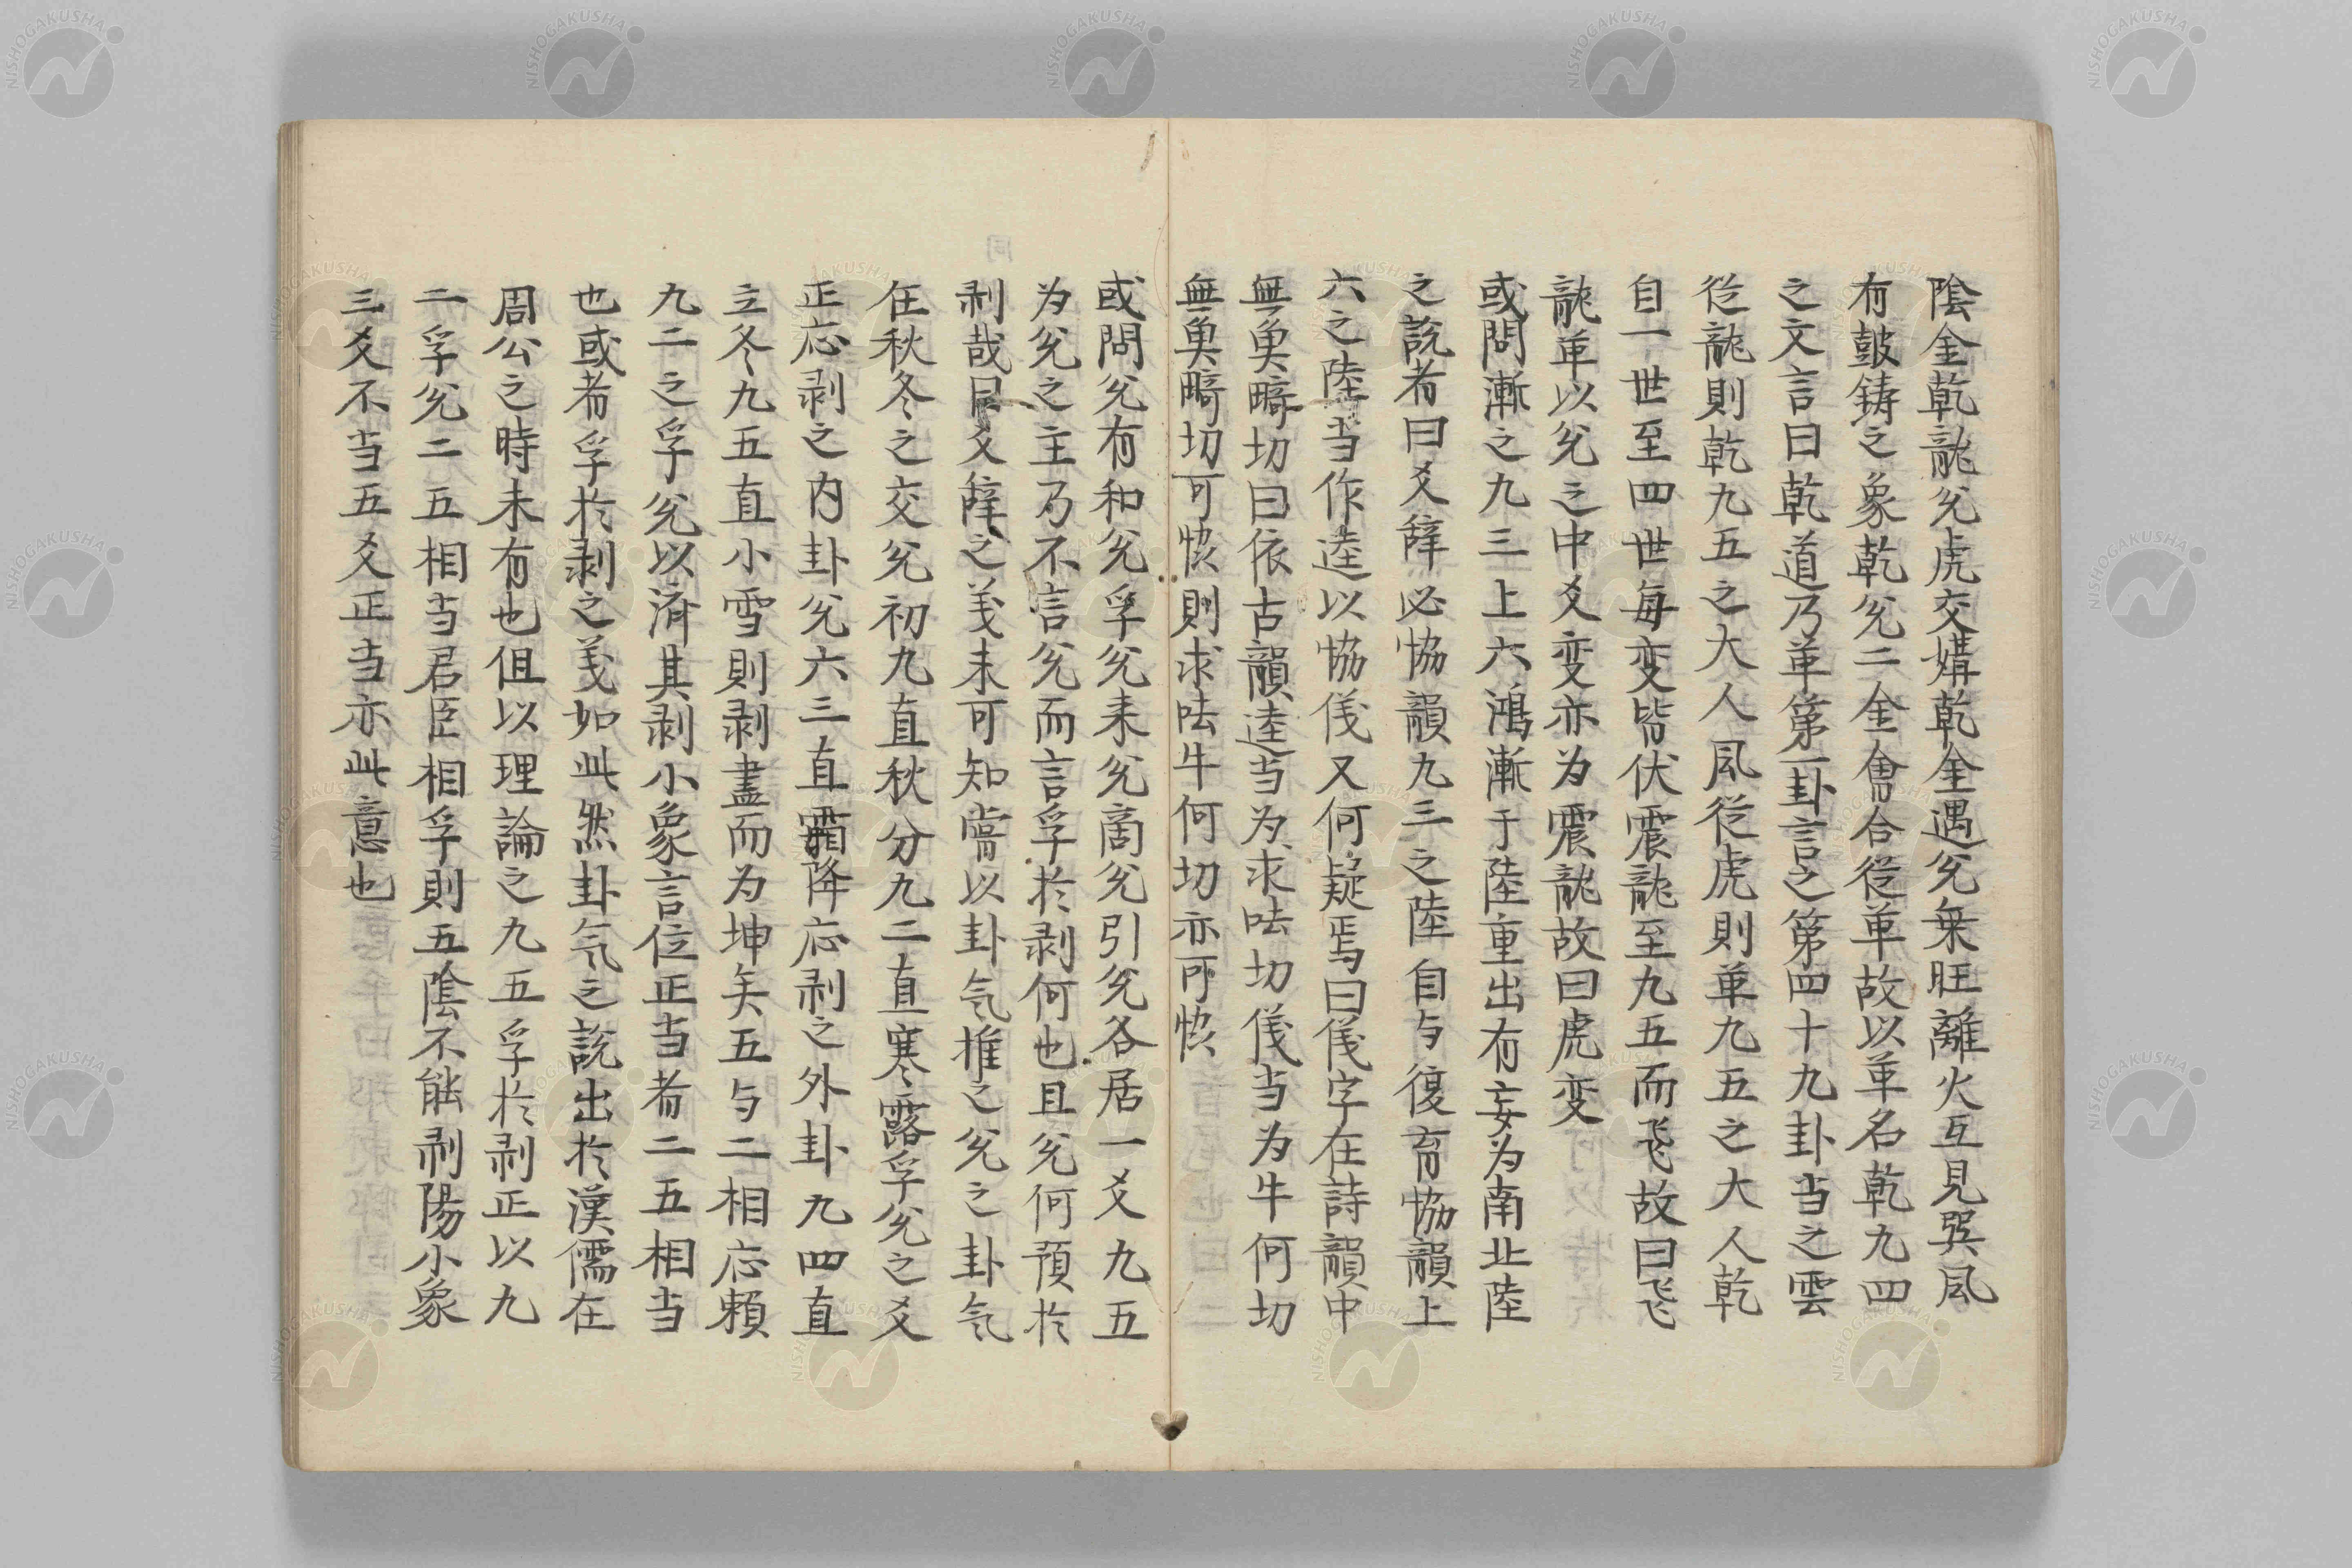 陰金乾龍兌虎交媾乾金遇兌乗旺離火互見巽風
有鼓鋳之象乾兌二金會合從革故以革名乾九四
之文言曰乾道乃革第一卦言之第四十九卦当之雲
從龍則乾九五之大人風從虎則革九五之大人乾
自一世至四世每变皆伏震龍至九五而飛故曰飛
龍革以兌之中爻变亦为震龍故曰虎变
或問漸之九三上六鴻漸于陸重出有妄为南北陸
之說者曰爻辞必恊韻九三之陸自与復育恊韻上
六之陸当作逵以恊儀又何疑焉曰儀字在詩韻中
無奧疇切曰依古韻逵当为求呿切儀当为牛何切
無奧疇切可恢則求呿牛何切亦可恢
或問兌有和兌孚兌来兌商兌引兌各居一爻九五
为兌之主乃不言兌而言孚於剥何也且兌何預於
剥哉曰爻辞之義未可知嘗以卦気推之兌之卦気
在秋冬之交兌初九直秋分九二直寒露孚兌之爻
正応剥之内卦兌六三直霜降応剥之外卦九四直
立冬九五直小雪則剥盡而为坤矣五与二相応頼
九二之孚兌以済其剥小象言位正当者二五相当
也或者孚於剥之義如此然卦気之說出於漢儒在
周公之時未有也但以理論之九五孚於剥正以九
二孚兌二五相当君臣相孚則五陰不能剥陽小象
三爻不当五爻正当亦此意也